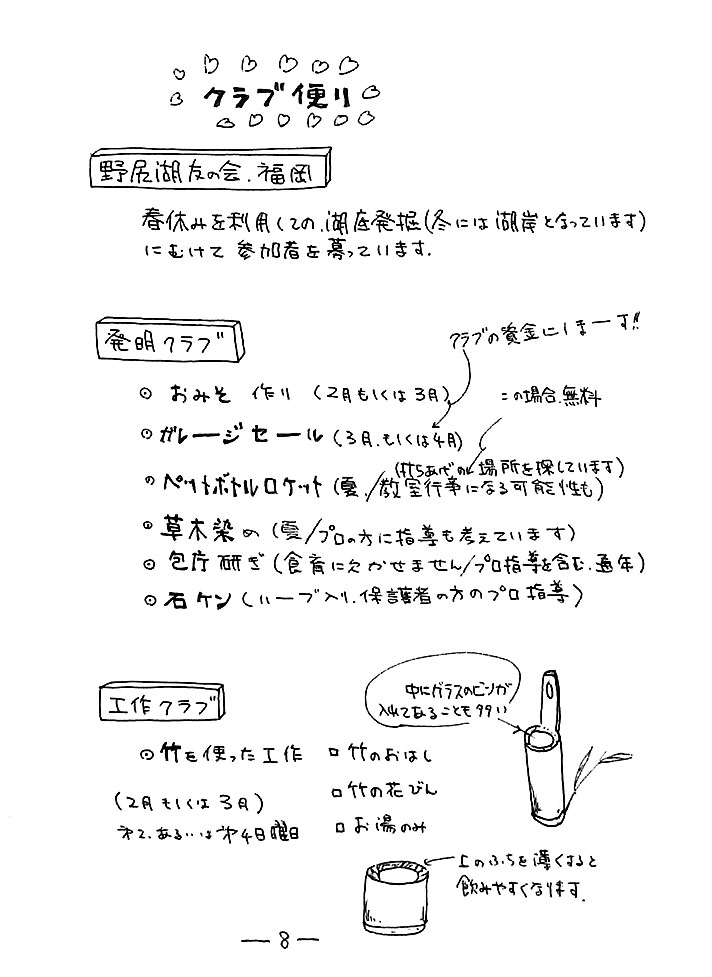 クラブ便り
野尻湖友の会.福岡
春休みを利用しての.湖底発掘(冬には湖岸となっています)
にむけて 参加者を募っています.
発明クラブ
クラブの資金にしまーす!!
おみそ 作り (2月もしくは3月)
この場合.無料
ガレージセール (3月.もしくは4月)
(打ちあげの場所を探しています)
ペットボトルロケット (夏./教室行事になる可能性も)
草木染め (夏/プロの方に指導も考えています)
包庁研ぎ (食育に欠かせません/プロ指導を含む.通年)
石ケン (ハーブ入り.保護者の方のプロ指導)
工作クラブ
中にガラスのビンが
入れてあることも多い
竹を使った工作
竹のおはし
竹の花びん
お湯のみ
(2月もしくは3月)
第2.あるいは第4日曜日
上のふちを薄くすると
飲みやすくなります.
— 8 —